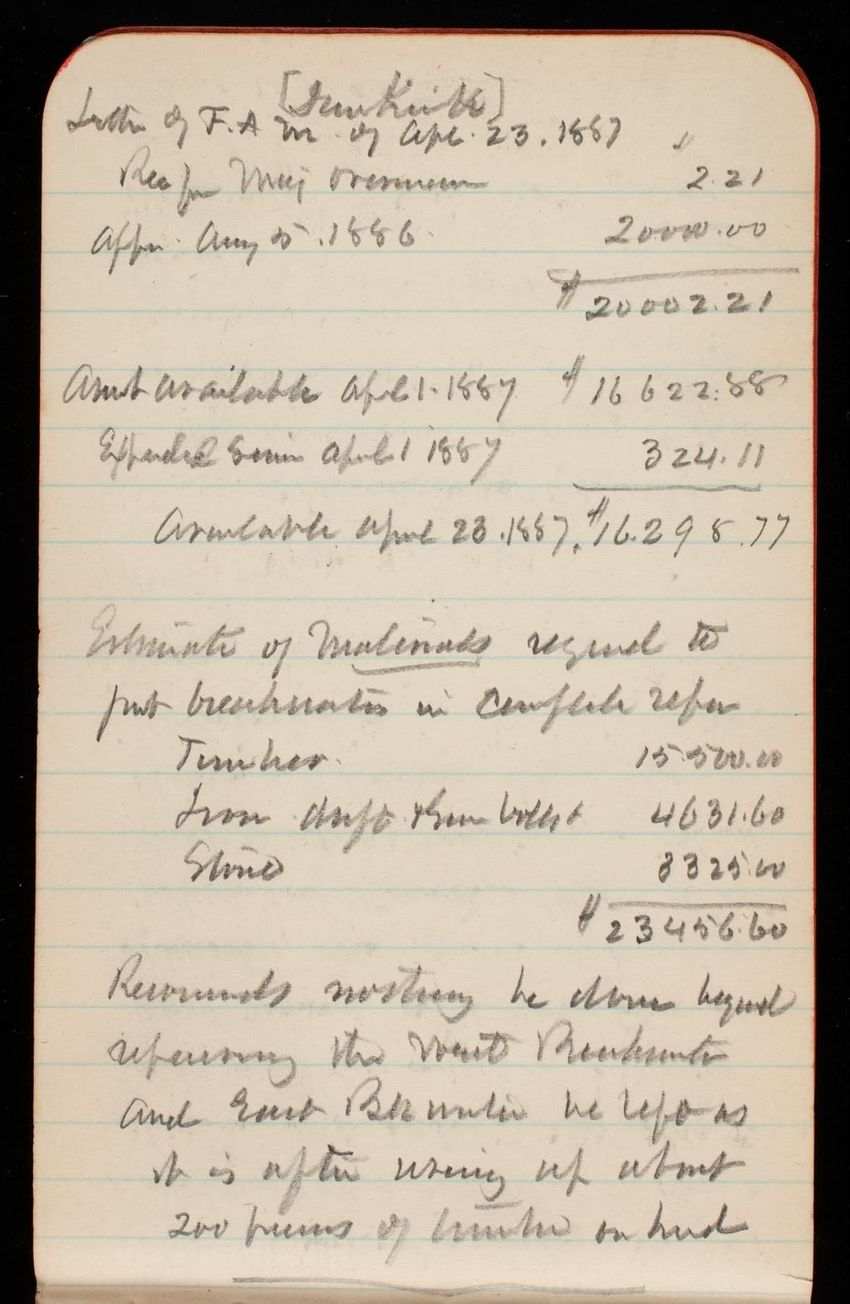 [Dunkirk]
Letter of F.A.M. of Apl. 23. 1887
Rec from Maj Overman $ 2.21
Appn. Aug 5. 1886. 20000.00
$ 20002.21
Amt available April 1. 1887 $ 16622.88
Expended since April 1 1887 324.11
Available April 23. 1887. $16.298.77
Estimate of Materials required to
put breakwater in complete repair
Timber. 15500.00
Iron drift & screw bolts 4631.60
Stone 3325.00
$ 23456.60
Recommends nothing be done beyond
repairing the West Breakwater
and East Bkwater be left as
it is after using up about
200 pieces of timber on hand